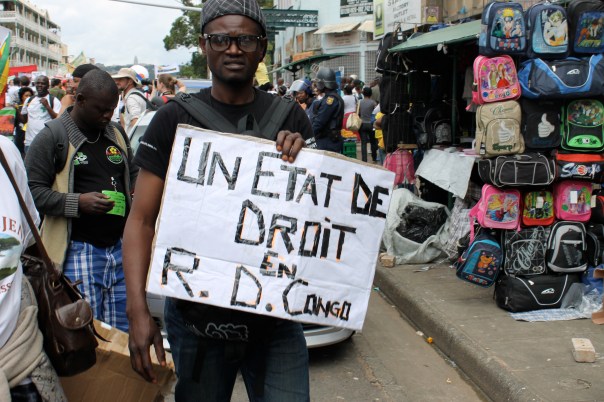 UN ETAT DE
DROIT
EN
R. D. CONGO